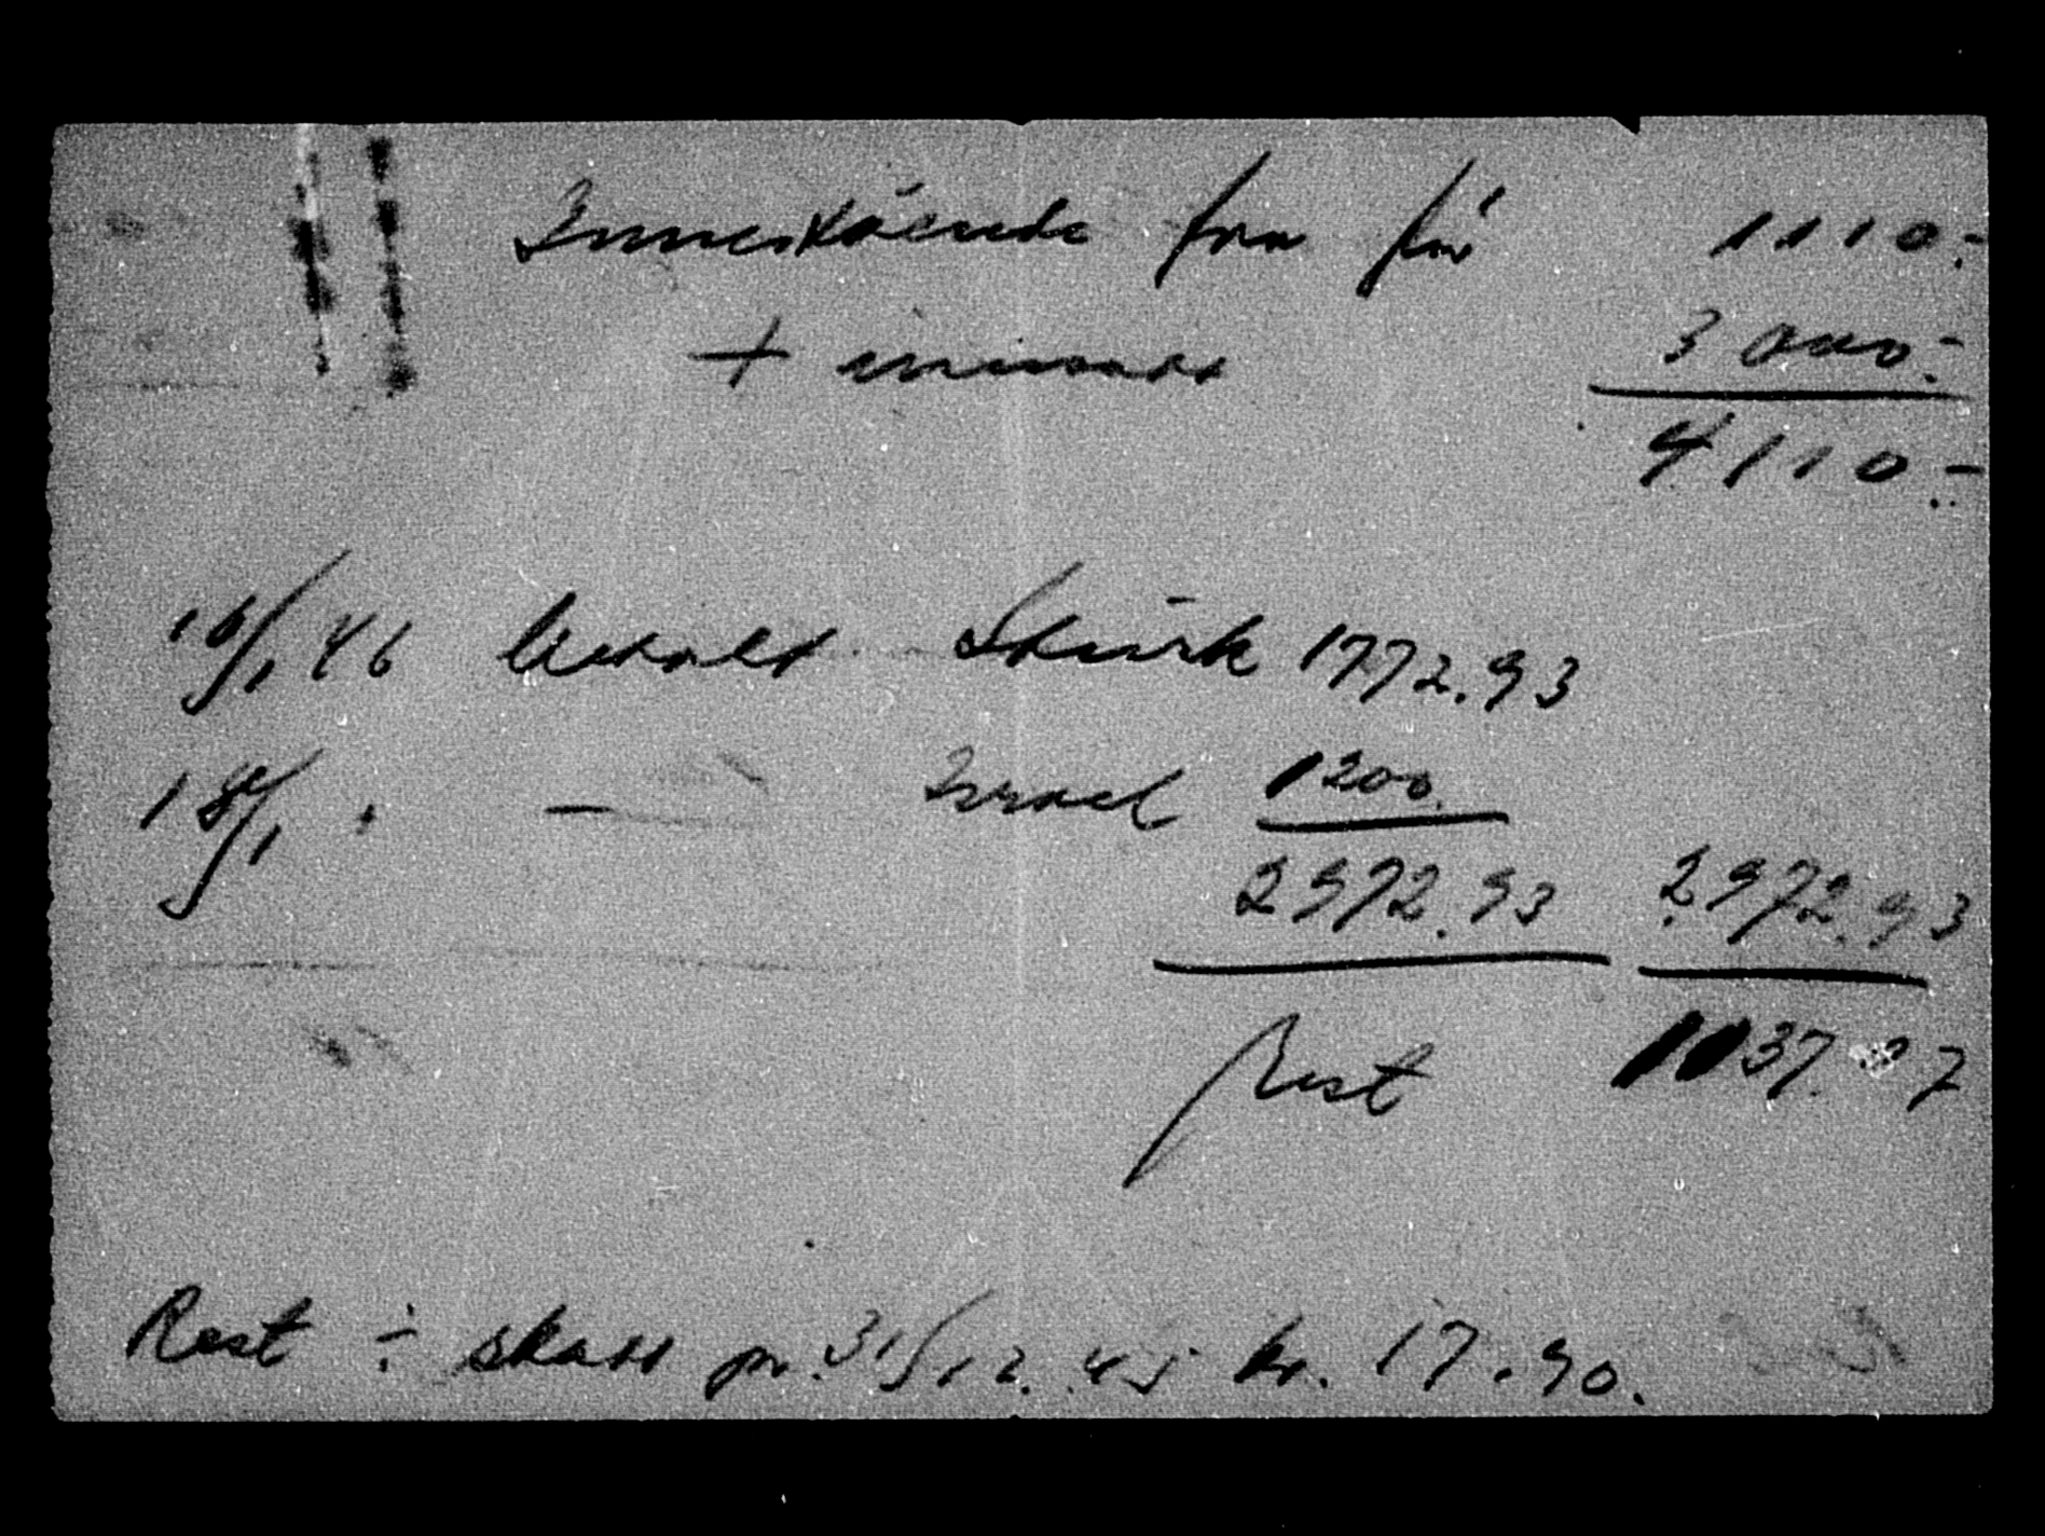 Innestående fra før 1110.-
+ innsatt 3000.-
4110.-
16/1 46 betalt Skurk 1772.93
18/1 " — Israel 1200.
2972.93 2972.93
Rest 1137.07
Rest ÷ skatt pr. 31/12. 45 kr. 17.90.